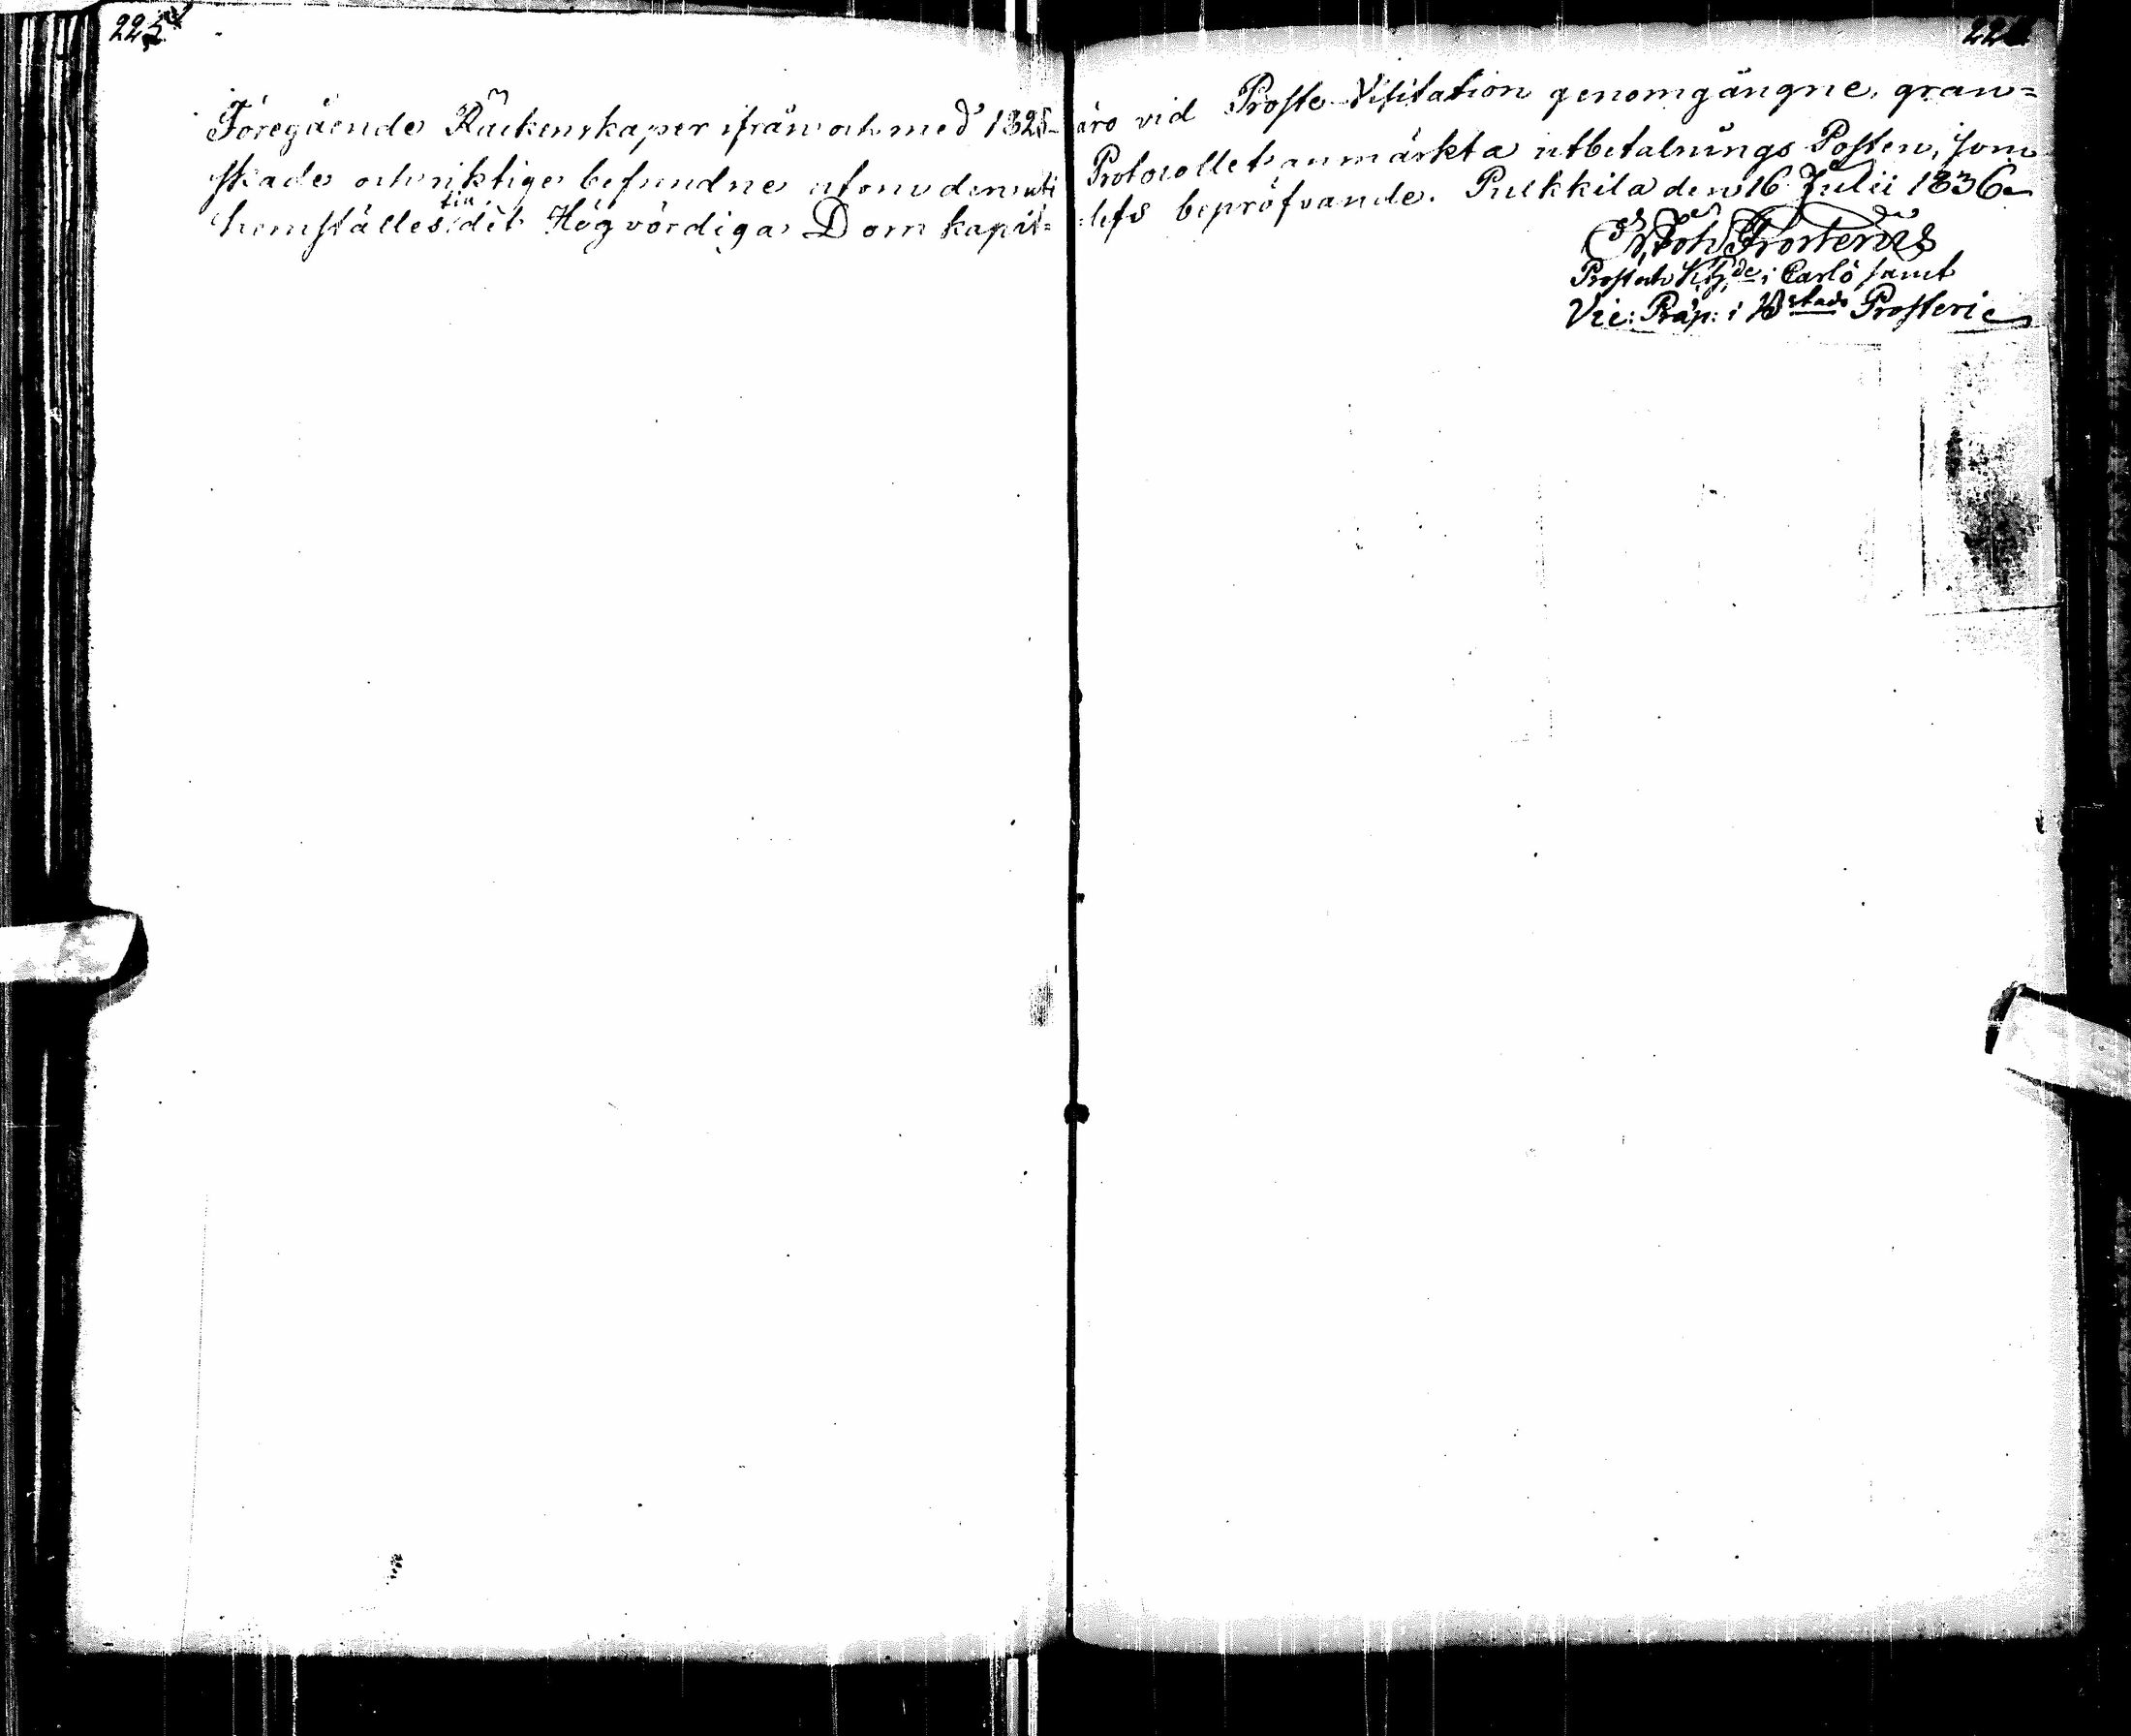 Föregående Räkenskaper ifrån och med 1828 äro vid Proste-Visitation genomgångne, gran=
skade och riktige befundne utom den uti Protocollet anmärkta utbetalnings Posten, som
hemställes till det Högvördiga Domkapit= lets bepröfvande. Pulkkila den 16 Julii 1836
Joh Frosterus
Prost och Khde i Carlö samt
Vic: Präp: i Ustads Prosteri